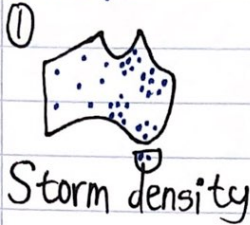 ①
Storm density